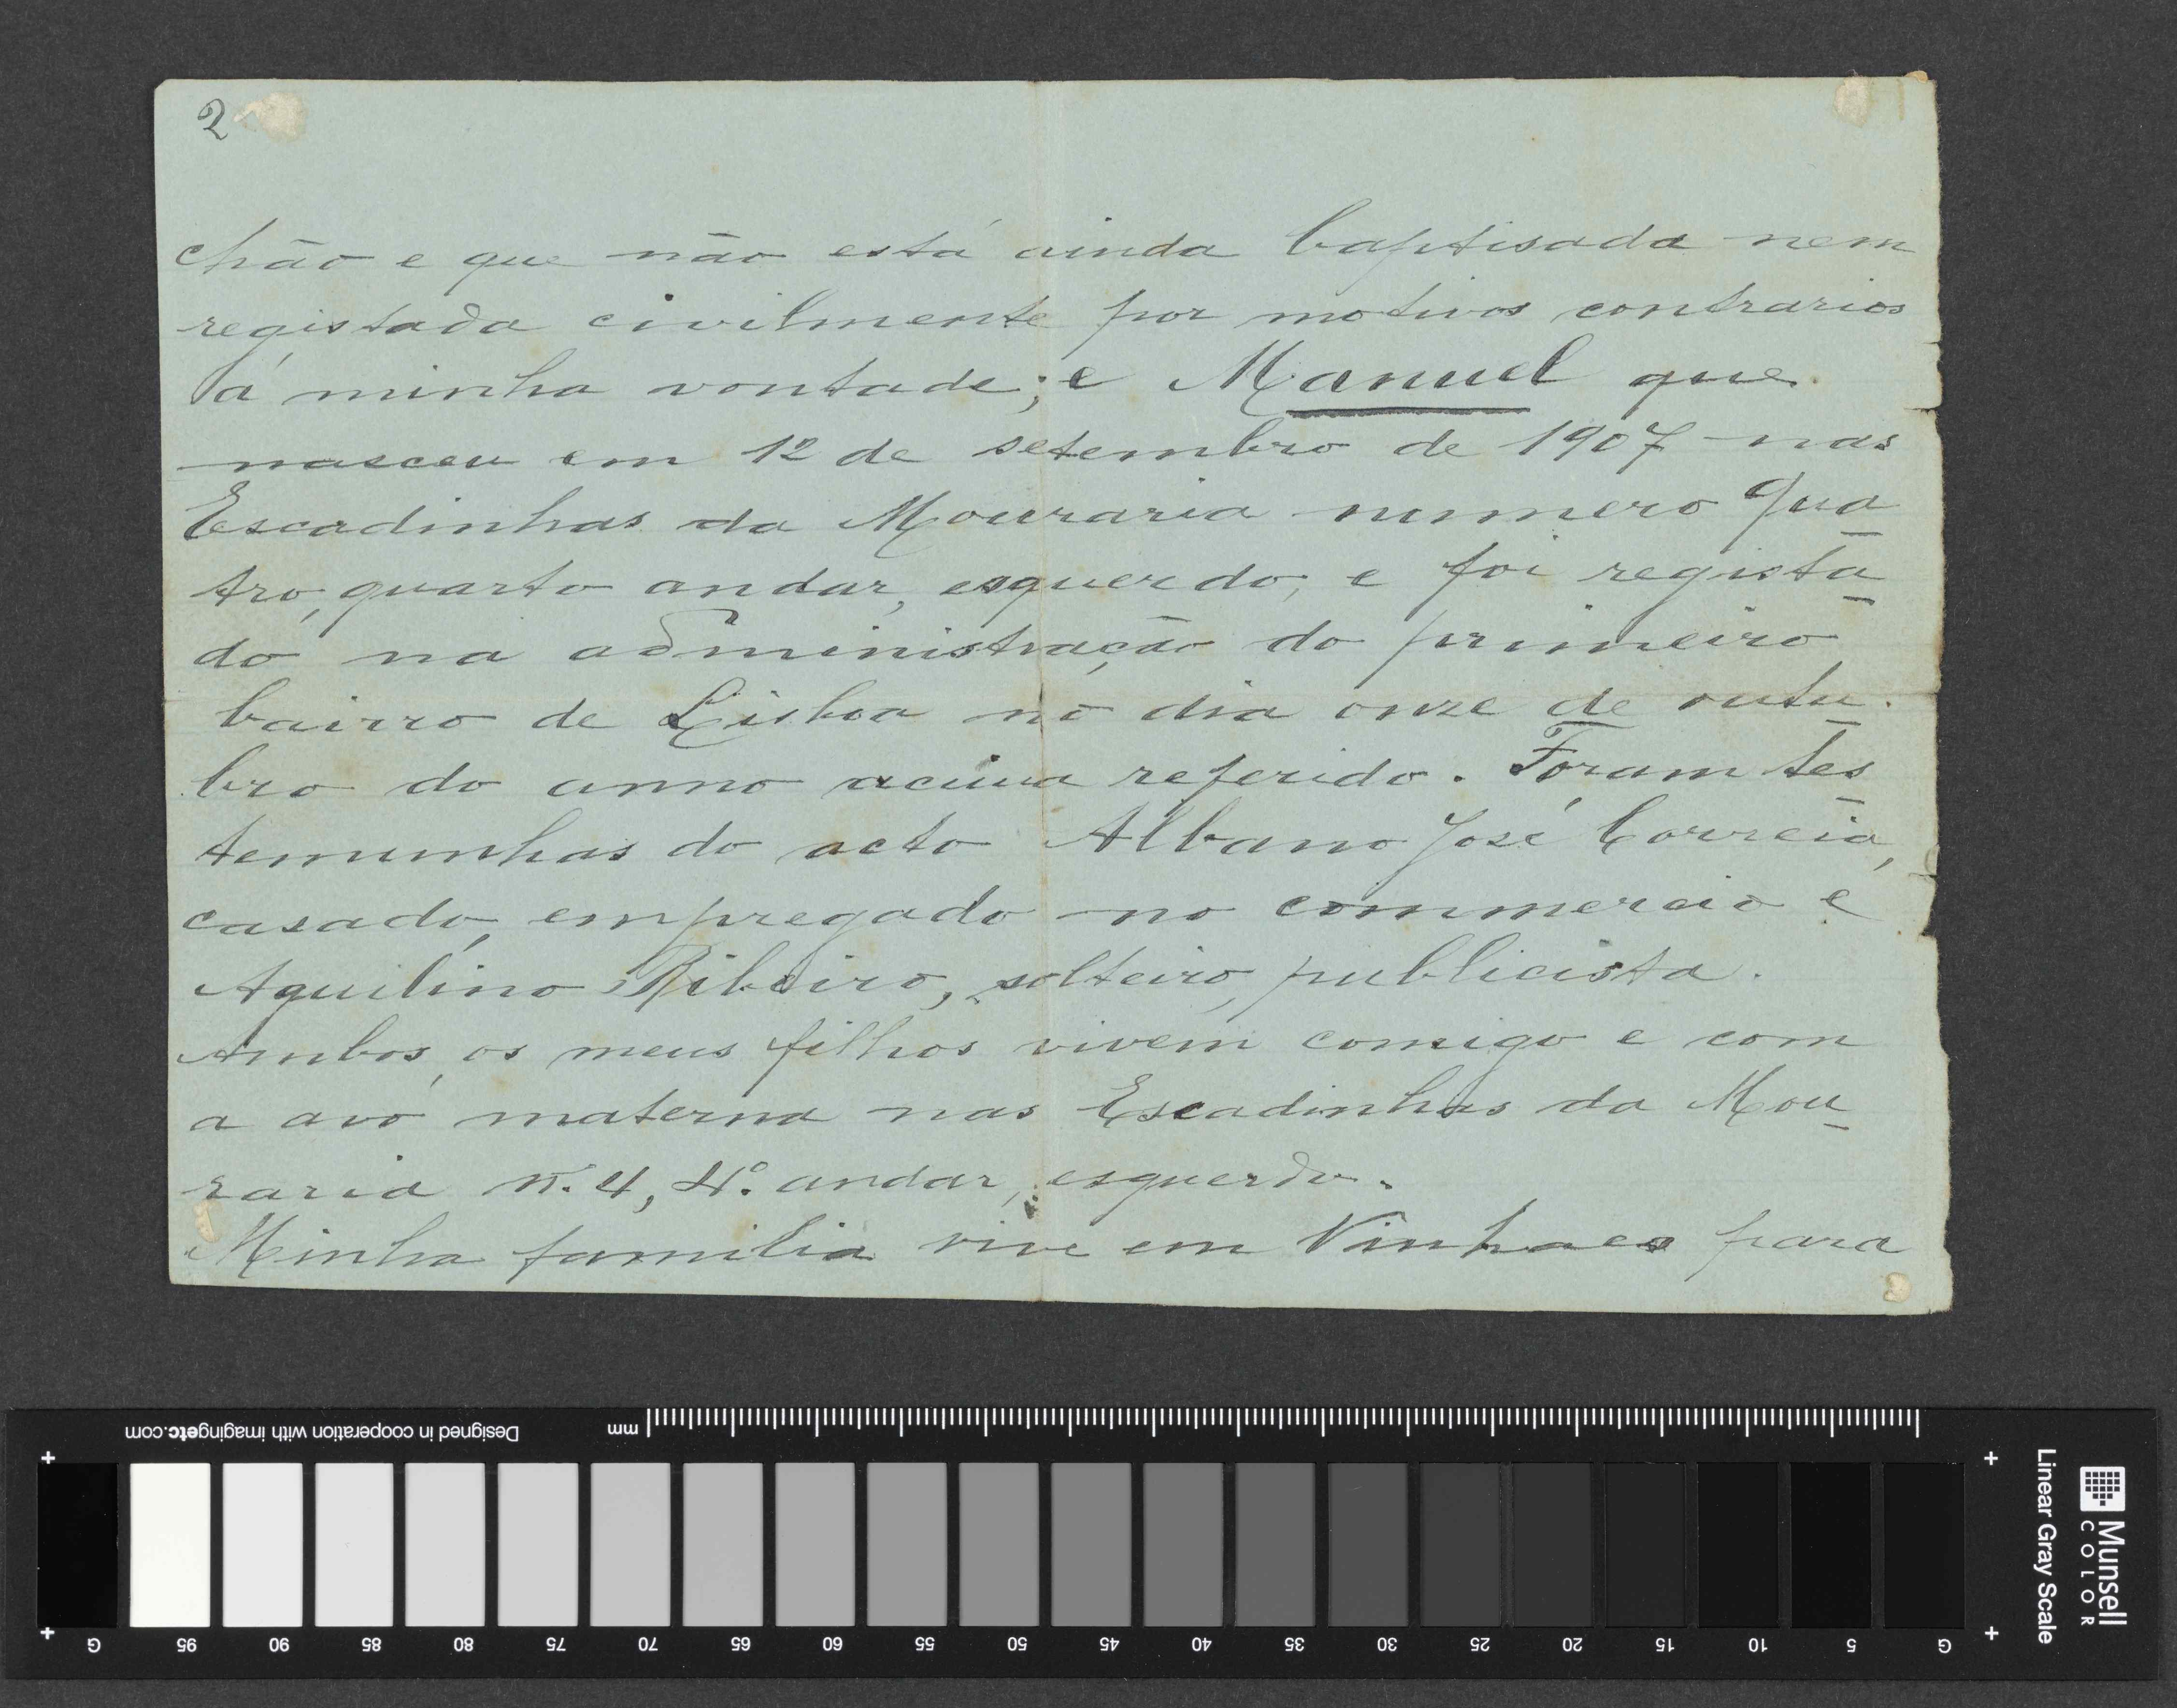 2
chão e que não está ainda baptisada nem
registada civilmente por motivos contrarios
á minha vontade; e Manuel que
nasceu em 12 de setembro de 1907 nas
Escadinhas da Mouraria numero qua
tro, quarto andar, esquerdo, e foi regista
do na administração do primeiro
bairro de Lisboa no dia onze de outu
bro do anno acima referido. Foram tes
temunhas do acto Albano José Correia,
casado, empregado no commercio e
Aquilino Ribeiro, solteiro, publicista.
Ambos os meus filhos vivem comigo e com
a avó materna nas Escadinhas da Mou
raria n. 4, 4.º andar, esquerdo.
Minha familia vive em Vinhaes para
Designed in cooperation with imagingetc.com
mm
G 95 90 85 80 75 70 65 60 55 50 45 40 35 30 25 20 15 10 5 G
Linear Gray Scale
Munsell
COLOR